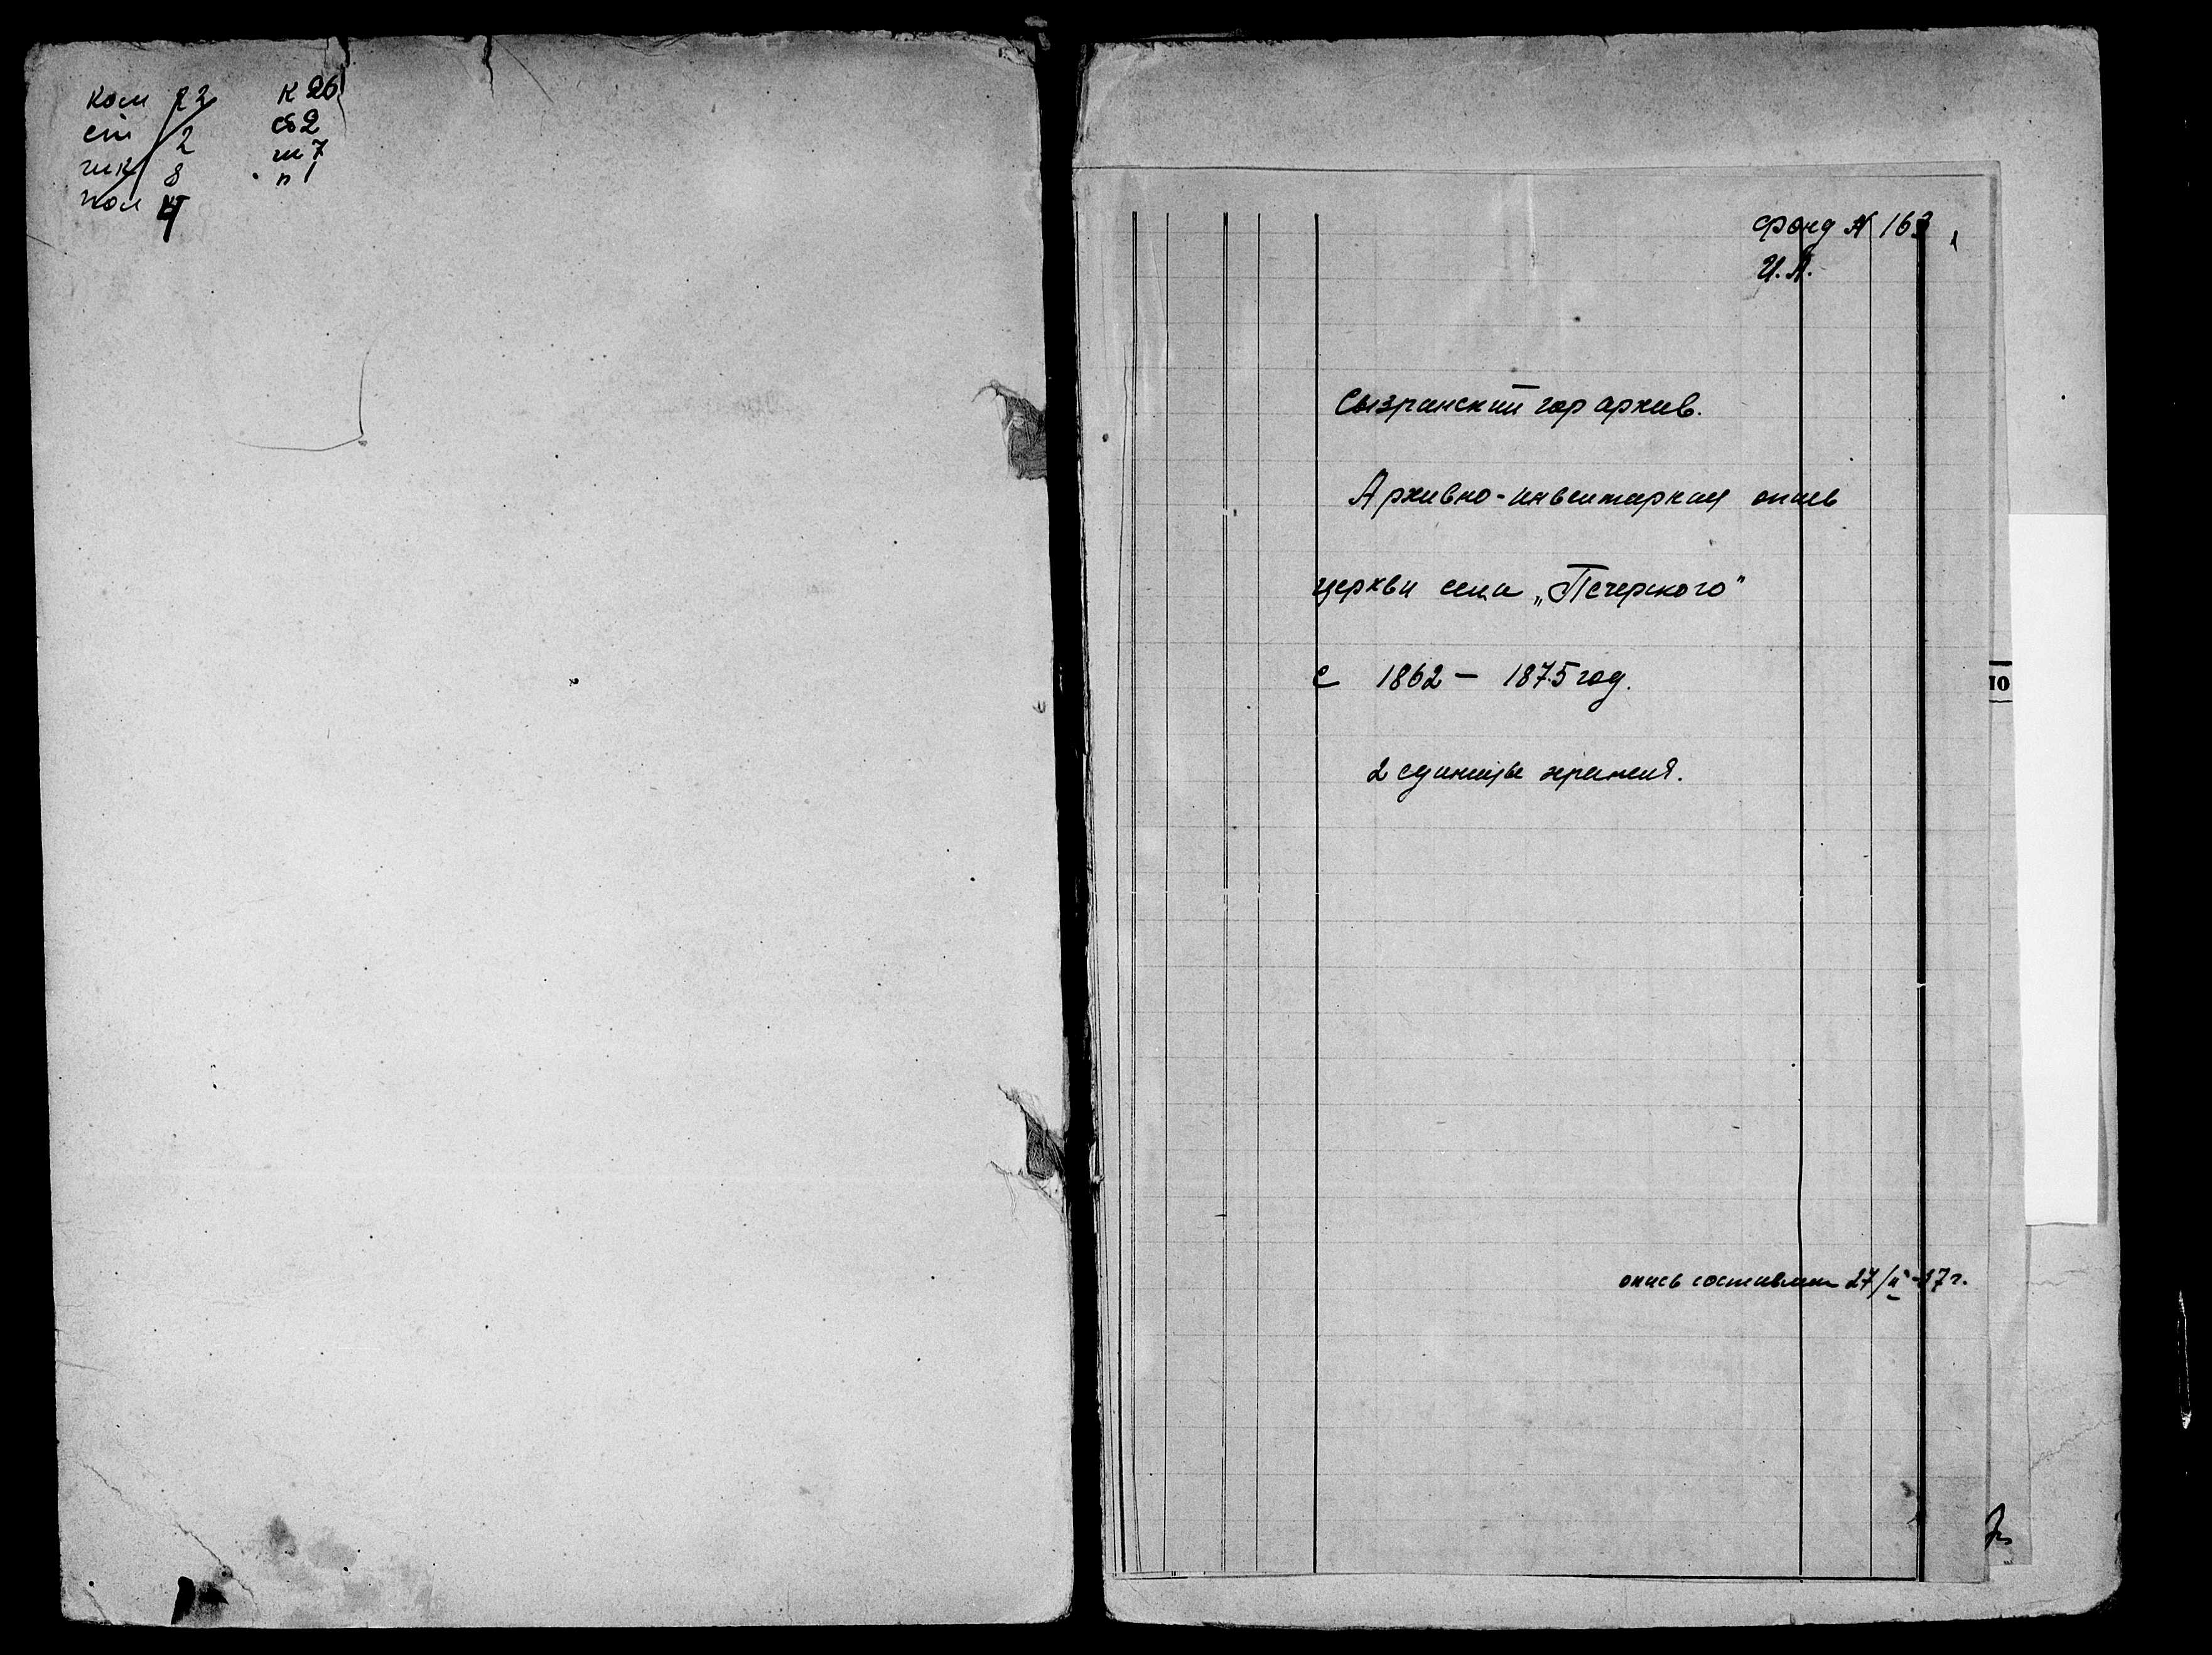 ком 22
ст 2
шк 8
пол 4
к 26
сб 2
ш 7
п 1
Фонд № 163
И. А.
1
Сызранский гор архив.
Архивно-инвентарная опись
церкви села „Печерского"
с 1862 – 1875 год.
2 единицы хранения.
10
опись составлена 27/II